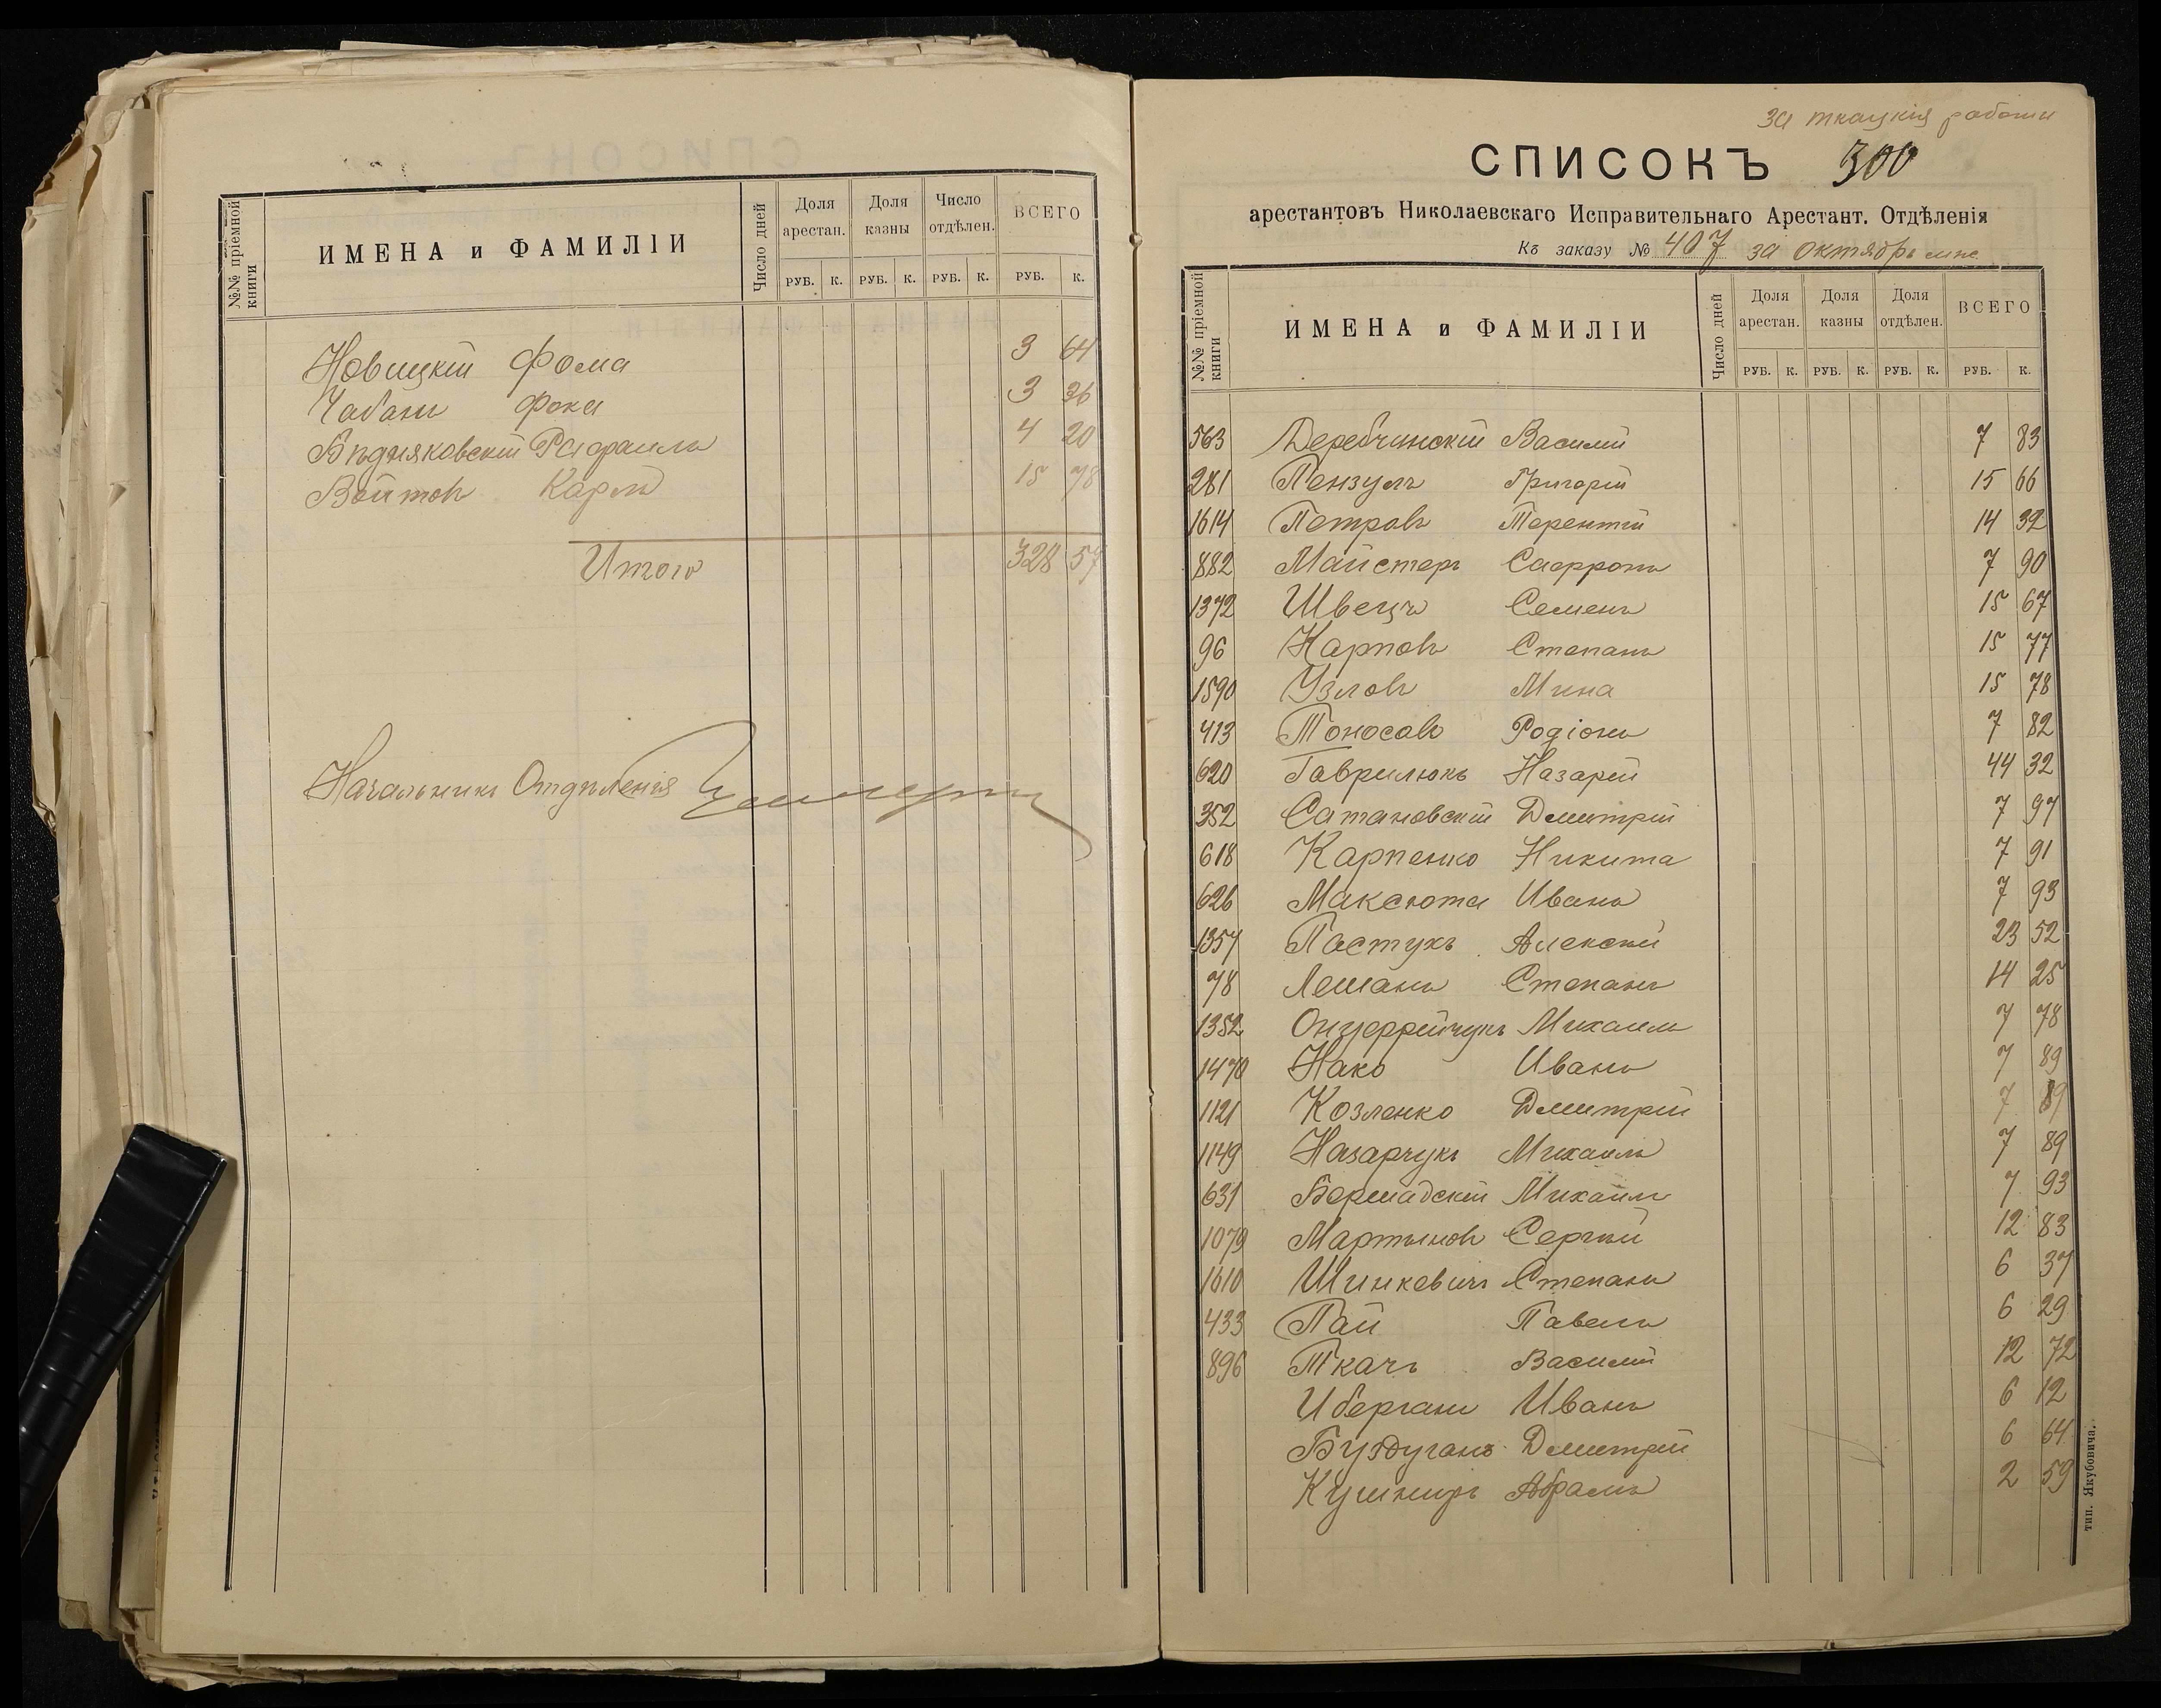 №№ пріемной книги
ИМЕНА и ФАМИЛІИ
Число дней
Доля арестан.
Доля казны
Число отдѣлен.
ВСЕГО
РУБ. К. РУБ. К. РУБ. К. РУБ. К.
Новицкій Фома 3 64
Чабанъ Фока 3 36
Бѣдняковскій Рафаилъ 4 20
Войтовъ Карпъ 15 78
Итого 328 57
Начальникъ Отдѣленія
за ткацкія работы
СПИСОКЪ 300
арестантовъ Николаевскаго Исправительнаго Арестант. Отдѣленія
Къ заказу № 407 за Октябрь мнс
№№ пріемной книги
ИМЕНА и ФАМИЛІИ
Число дней
Доля арестан.
Доля казны
Доля отдѣлен.
ВСЕГО
РУБ. К. РУБ. К. РУБ. К. РУБ. К.
563 Деребчинскій Василій 7 83
281 Пензулъ Григорій 15 66
1614 Петровъ Терентій 14 32
882 Майстеръ Сафронъ 7 90
1372 Швецъ Семенъ 15 67
96 Карповъ Степанъ 15 77
1590 Узловъ Мина 15 78
413 Тоносовъ Родіонъ 7 82
620 Гаврилюкъ Назарій 44 32
352 Сатановскій Дмитрій 7 97
618 Карпенко Никита 7 91
626 Максюта Иванъ 7 93
1357 Пастухъ Алексѣй 23 52
78 Лешанъ Степанъ 14 25
1352 Онуфрійчукъ Михаилъ 7 78
1470 Нако Иванъ 7 89
1121 Козленко Дмитрій 7 89
1149 Назарчукъ Михаилъ 7 89
631 Бершадскій Михаилъ 7 93
1079 Мартыновъ Сергѣй 12 83
1610 Шинкевичъ Степанъ 6 37
433 Пай Павелъ 6 29
896 Ткачъ Василій 12 72
Ибергани Иванъ 6 12
Буздуганъ Дмитрій 6 64
Кушниръ Абрамъ 2 59
тип. Якубовича.